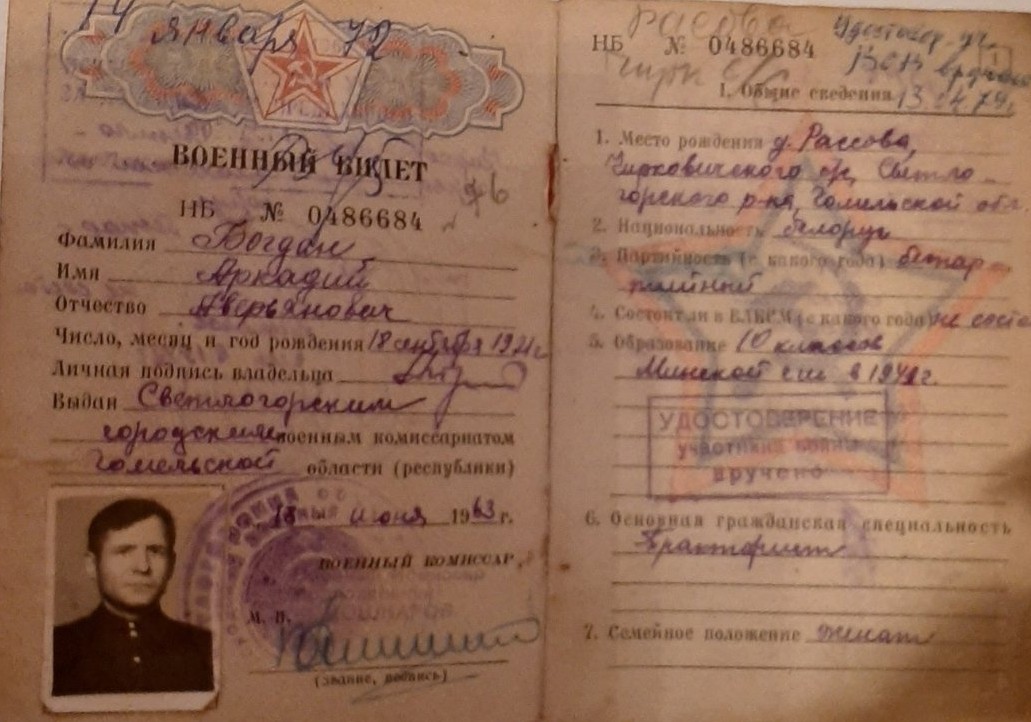 14
января 72
ВОЕННЫЙ БИЛЕТ
НБ № 0486684
Фамилия Богдан
Имя Аркадий
Отчество Аверьянович
Число, месяц и год рождения 18 сентября 1921г
Личная подпись владельца
Выдан Светлогорским
городским военным комиссариатом
Гомельской области (республики)
18 июня 1963 г.
ВОЕННЫЙ КОМИССАР,
М. П.
(звание, подпись)
Расова
НБ № 0486684
Удостовер. уч.
ВОВ вручено
13.04.79г.
1
I. Общие сведения
1. Место рождения д. Рассова,
Чирковичского с/с, Светло-
горского р-на, Гомельской обл.
2. Национальность белорус
3. Партийность (с какого года) беспар-
тийный
4. Состоит ли в ВЛКСМ (с какого года) не сост
5. Образование 10 классов
Минской сш в 1941г.
УДОСТОВЕРЕНИЕ
участника войны
вручено
6. Основная гражданская специальность
Тракторист
7. Семейное положение женат